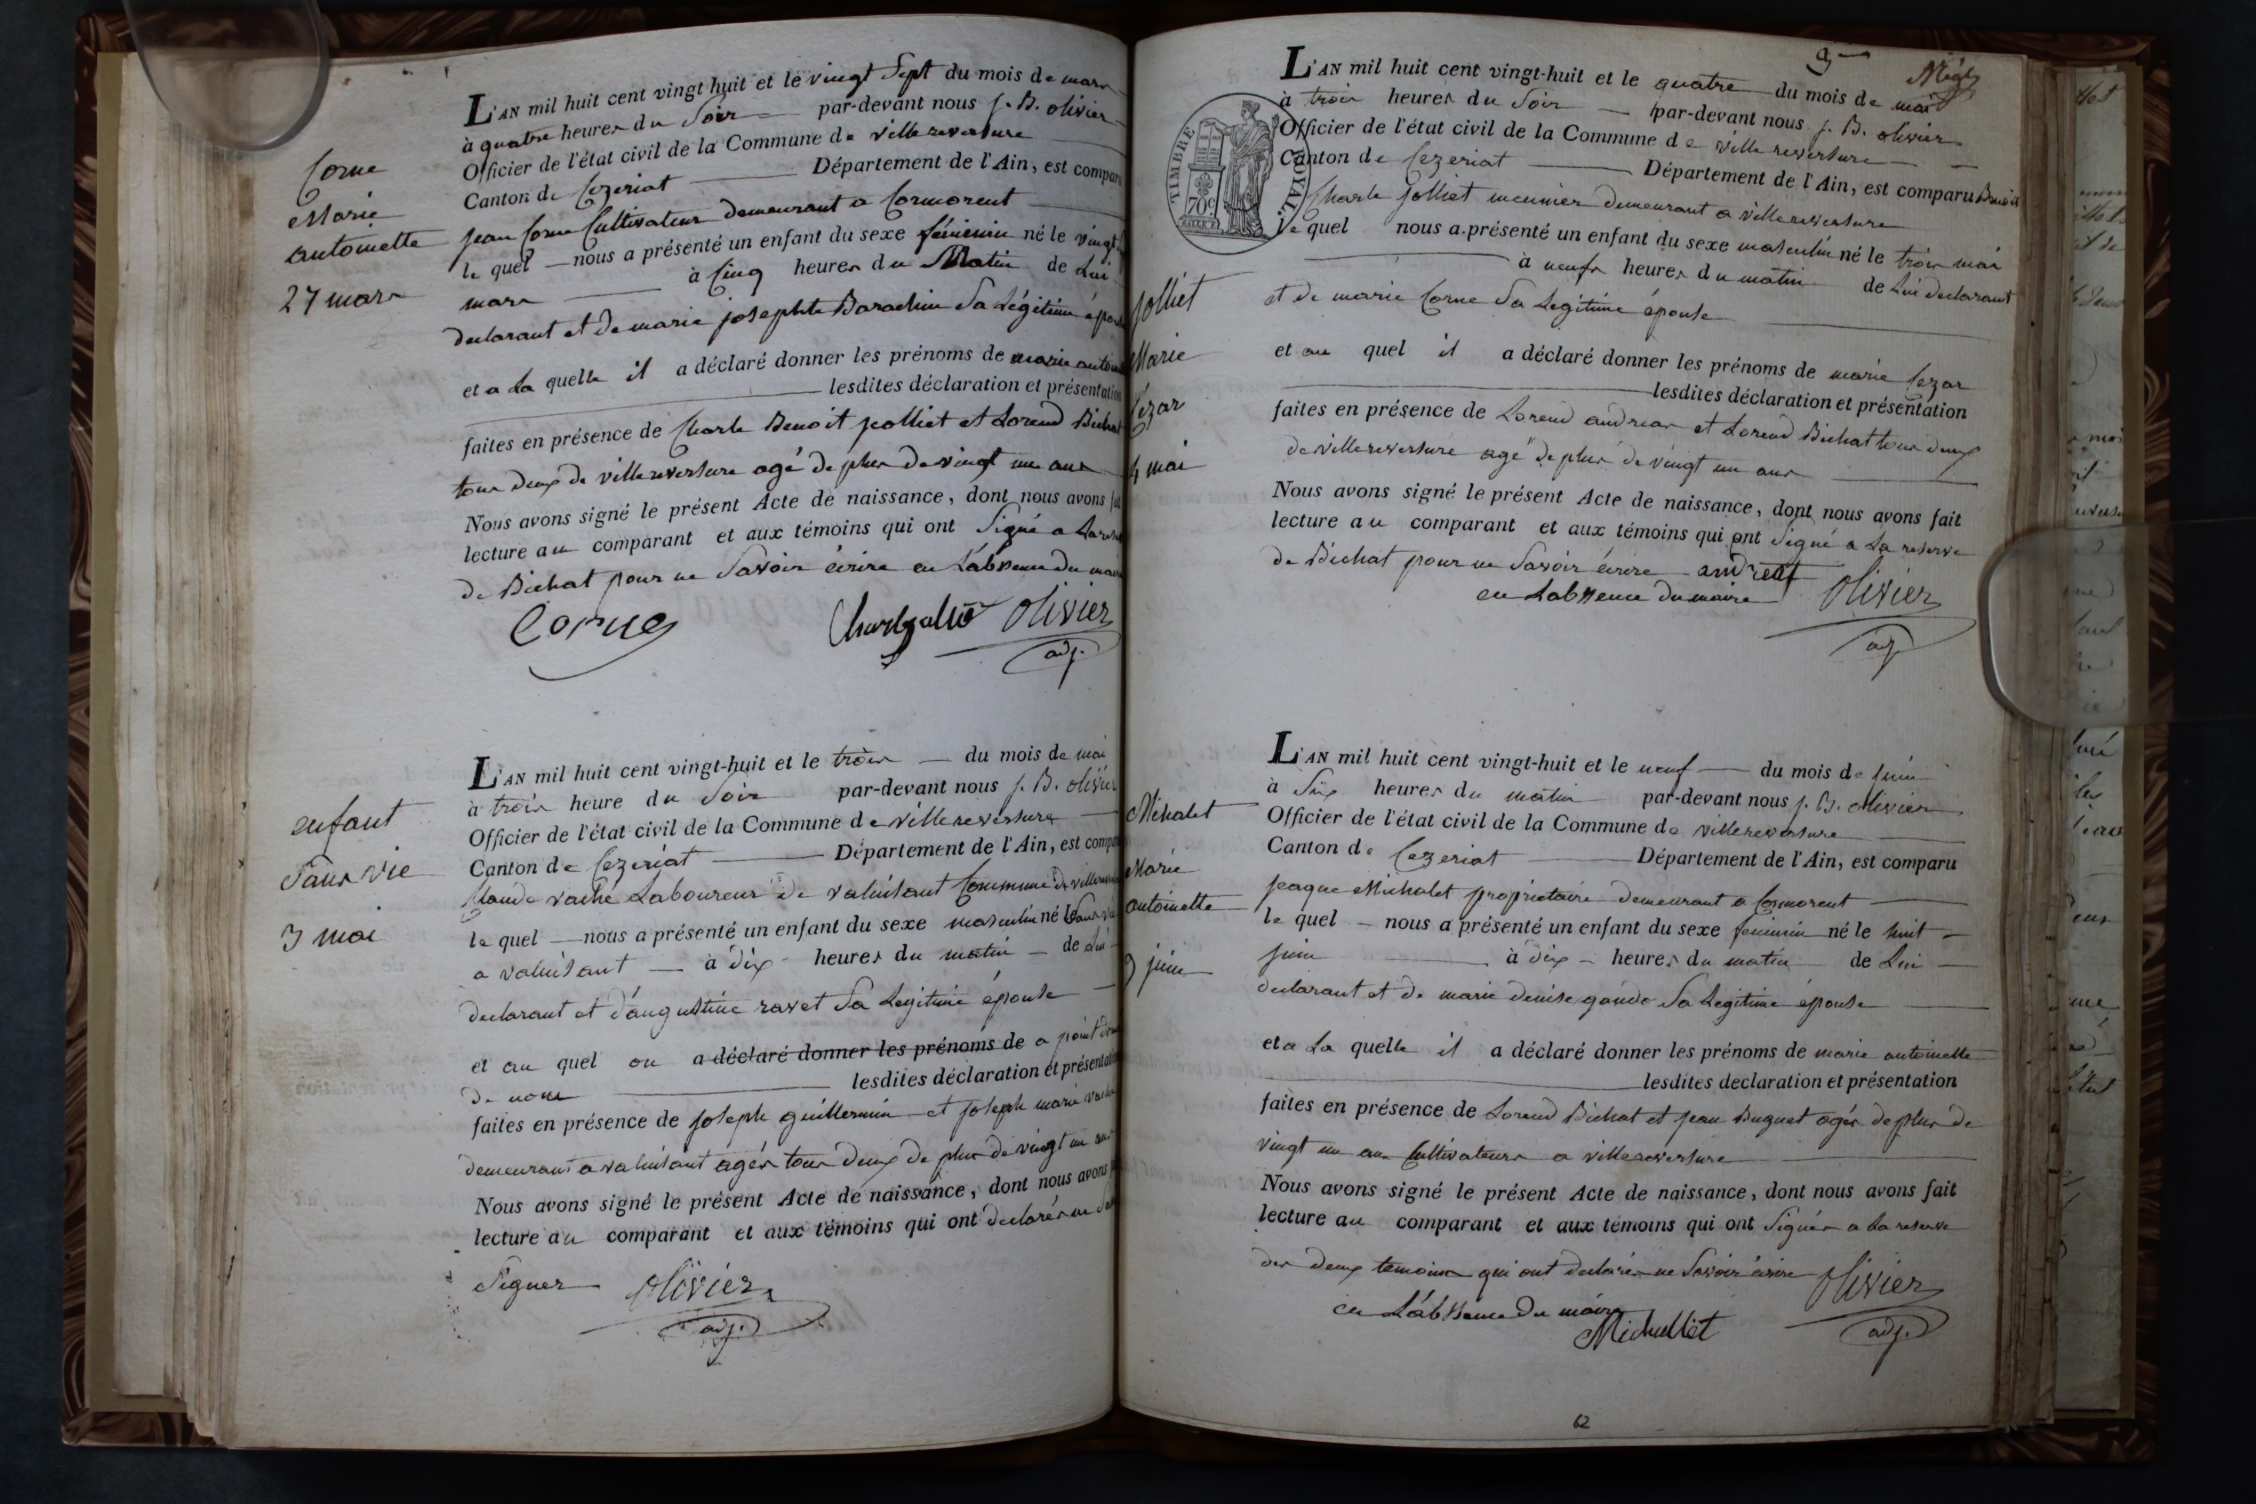 Corne
Marie
antoinette
27 mars
L'AN mil huit cent vingt-huit et le vingt Sept du mois de mars
à quatre heures du Soir par-devant nous j. B. olivier
Officier de l'état civil de la Commune de villereversure
Canton de Cezeriat Département de l'Ain, est compar
jean Corne Cultivateur demeurant a Cormorent
le quel nous a présenté un enfant du sexe féminin né le vingt
mars à Cinq heures du Matin de Lui
declarant et de marie josephte Barachin Sa Légitime épou
et a La quelle il a déclaré donner les prénoms de marie antoi
lesdites déclaration et présentation
faites en présence de Charle Benoit jolliet et Lorend Bichat
tous deux de villereversure agé de plus de vingt un ans
Nous avons signé le présent Acte de naissance, dont nous avons fai
lecture au comparant et aux témoins qui ont Signé a La rese
de Bichat pour ne Savoir écrire en L'abssence du maire
Corne olivier
adj.
enfant
Sans vie
3 mai
L'AN mil huit cent vingt-huit et le trois du mois de mai
à trois heure du Soir par-devant nous j. B. olivier
Officier de l'état civil de la Commune de villereversure
Canton de Cezeriat Département de l'Ain, est compa
Claude vaché Laboureur de valuisant Commune de villerever
le quel nous a présenté un enfant du sexe masculin né le Sans vie
a valuisant à dix heures du matin de Lui
declarant et d'augustine ravet Sa Legitime épouse
et au quel on a déclaré donner les prénoms de a point don
de nom lesdites déclaration et présentati
faites en présence de joseph guillermin et joseph marie vaché
demeurans a valuisant agés tous deux de plus de vingt un ans
Nous avons signé le présent Acte de naissance, dont nous avons
lecture au comparant et aux témoins qui ont declarés ne Sa
Signer olivier
adj.
9
L'AN mil huit cent vingt-huit et le quatre du mois de mai
à trois heures du Soir par-devant nous j. B. olivier
Officier de l'état civil de la Commune de villereversure
Canton de Cezeriat Département de l'Ain, est comparu Benoit
TIMBRE ROYAL.
70c
Charle jolliet meunier demeurant a villereversure
le quel nous a présenté un enfant du sexe masculin né le trois mai
à neufs heures du matin de Lui declarant
jolliet
Marie
Cézar
4 mai
et de marie Corne Sa Legitime épouse
et au quel il a déclaré donner les prénoms de marie Cezar
lesdites déclaration et présentation
faites en présence de Lorend andreas et Lorend Bichat tous deux
de villereversure agé de plus de vingt un ans
Nous avons signé le présent Acte de naissance, dont nous avons fait
lecture au comparant et aux témoins qui ont Signé a La reserve
de Bichat pour ne Savoir écrire
en Labssence du maire olivier
adj
Michalet
Marie
antoinette
9 juin
L'AN mil huit cent vingt-huit et le neuf du mois de juin
à Six heures du matin par-devant nous j. B. olivier
Officier de l'état civil de la Commune de villereversure
Canton de Cezeriat Département de l'Ain, est comparu
jeaque Michalet proprietaire demeurant a Cormorent
le quel nous a présenté un enfant du sexe feminin né le huit
juin à dix heures du matin de Lui
declarant et de marie denise gande Sa Legitime épouse
et a La quelle il a déclaré donner les prénoms de marie antoinette
lesdites declaration et présentation
faites en présence de Lorend Bichat et jean Buguet agés de plus de
vingt un ans Cultivateurs a villereversure
Nous avons signé le présent Acte de naissance, dont nous avons fait
lecture au comparant et aux témoins qui ont Signés a La reserve
des deux temoins qui ont declarés ne Savoir écrire olivier
en L'abssence du maire adj.
Michallet
62